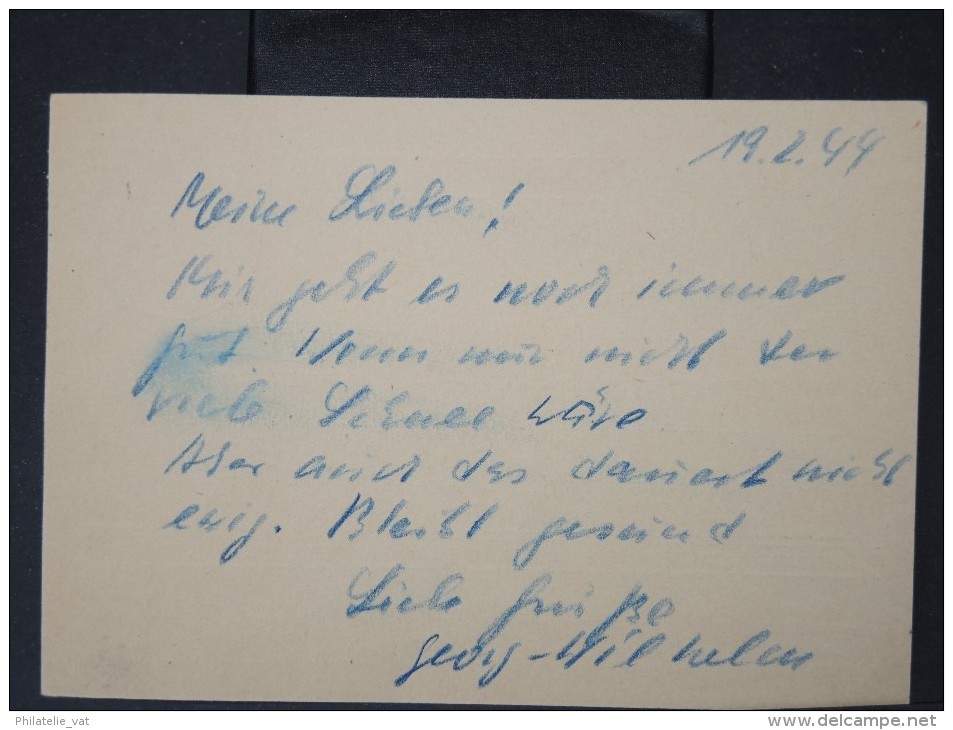 19.2.44
Meine Lieben!
Mir geht es noch immer
gut. Wenn nur nicht der
viele Schnee wäre
Aber auch das dauert nicht
ewig. Bleibt gesund
Liebe Grüße
Georg-Wilhelm
Philatelie_vat
http://www.delcampe.net